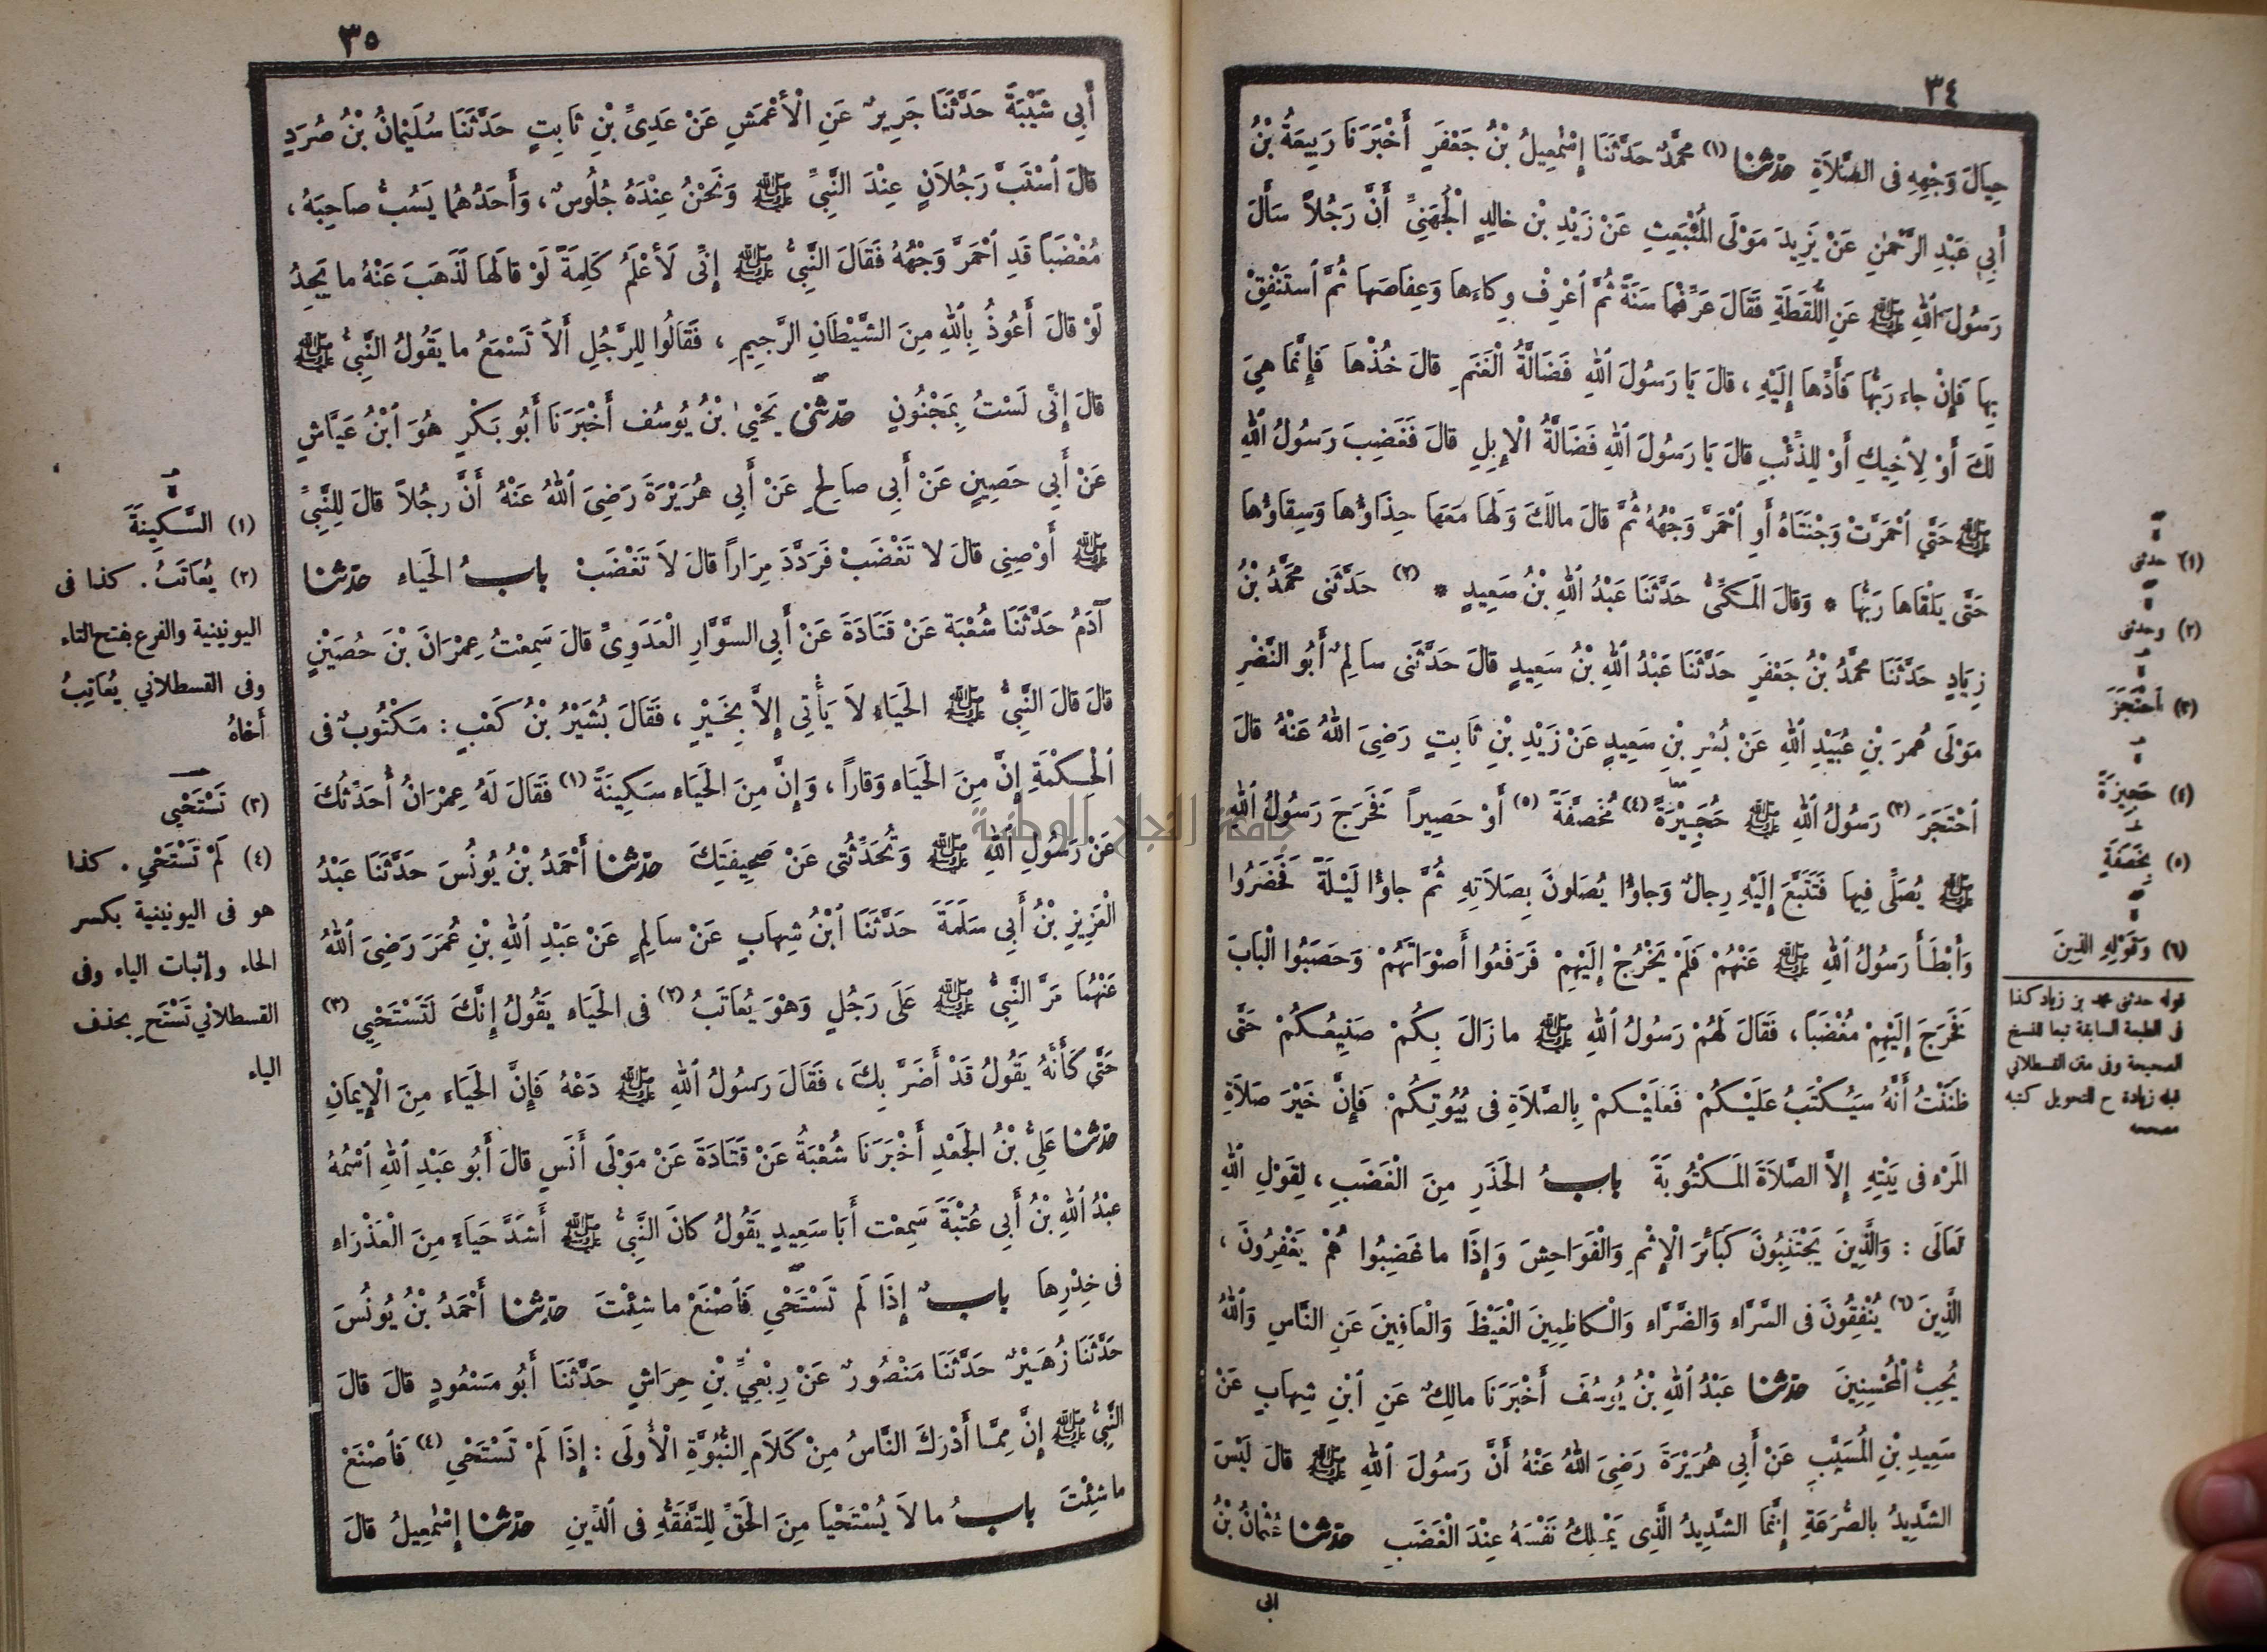 ٣٤
حِيَالَ وَجْهِهِ فِى الصَّلاَةِ حدّثنا (١) مُحَمَّدٌ حَدَّثَنَا إِسْمٰعِيلُ بْنُ جَعْفَرٍ أَخْبَرَنَا رَبِيعَةُ بْنُ
أَبِى عَبْدِ الرَّحْمٰنِ عَنْ يَزِيدَ مَوْلَى الْمُنْبَعِثِ عَنْ زَيْدِ بْنِ خالِدٍ الْجُهَنِىِّ أَنَّ رَجُلاً سَأَلَ
رَسُولَ اللهِ ﷺ عَنِ اللُّقَطَةِ فَقَالَ عَرِّفْهَا سَنَةً ثُمَّ اعْرِفْ وِكاءَها وَعِفاصَها ثُمَّ اسْتَنْفِقْ
بِهَا فَإِنْ جاء رَبُّهَا فَأَدِّها إِلَيْهِ ، قالَ يَا رَسُولَ اللهِ فَضَالَّةُ الْغَنَمِ قالَ خُذْها فَإِنَّمَا هِيَ
لَكَ أَوْ لِأَخِيكِ أَوْ لِلذِّئْبِ قالَ يَا رَسُولَ اللهِ فَضَالَّةُ الْإِبِلِ قالَ فَغَضِبَ رَسُولُ اللهِ
ﷺ حَتَّى احْمَرَّتْ وَجْنَتَاهُ أَوِ احْمَرَّ وَجْهُهُ ثُمَّ قالَ مالَكَ وَلَهَا مَعَهَا حِذَاؤُها وَسِقاؤُها
حَتَّى يَلْقَاها رَبُّهَا * وَقالَ الْمَكِّىُّ حَدَّثَنَا عَبْدُ اللهِ بْنُ سَعِيدٍ * (٢) حَدَّثَنِى مُحَمَّدُ بْنُ
زِيَادٍ حَدَّثَنَا مُحَمَّدُ بْنُ جَعْفَرٍ حَدَّثَنَا عَبْدُ اللهِ بْنُ سَعِيدٍ قالَ حَدَّثَنِى سالِمٌ أَبُو النَّضْرِ
مَوْلَى عُمَرَ بْنِ عُبَيْدِ اللهِ عَنْ بُسْرِ بْنِ سَعِيدٍ عَنْ زَيْدِ بْنِ ثَابِتٍ رَضِىَ اللهُ عَنْهُ قالَ
احْتَجَرَ (٣) رَسُولُ اللهِ ﷺ حُجَيْرَةً (٤) مُخَصَّفَةً (٥) أَوْ حَصِيراً فَخَرَجَ رَسُولُ اللهِ
ﷺ يُصَلِّى فِيهَا فَتَتَبَّعَ إِلَيْهِ رِجالٌ وَجاؤُا يُصَلونَ بِصَلاَتِهِ ثُمَّ جاؤُا لَيْلَةً فَحَضَرُوا
وَأَبْطَأَ رَسُولُ اللهِ ﷺ عَنْهُمْ فَلَمْ يَخْرُجْ إِلَيْهِمْ فَرَفَعُوا أَصْوَاتَهُمْ وَحَصَبُوا الْبَابَ
فَخَرَجَ إِلَيْهِمْ مُغْضَبَاً ، فَقَالَ لَهُمْ رَسُولُ اللهِ ﷺ ما زَالَ بِكُمْ صَنِيعُكُمْ حَتَّى
ظَنَنْتُ أَنَّهُ سَيُكْتَبُ عَلَيْكُمْ فَعَلَيْكمْ بِالصَّلاَةِ فِى بُيُوتِكُمْ فَإِنَّ خَيْرَ صَلاَةِ
المَرْءِ فِى بَيْتِهِ إِلاَّ الصَّلاَةَ المَكْتُوبَةَ بابُ الحَذَرِ مِنَ الْغَضَبِ ، لِقَوْلِ اللهِ
تَعَالَى : وَالَّذِينَ يَجْتَنِبُونَ كَبَائِرَ الْإِثْمِ وَالْفَوَاحِشَ وَإِذَا ما غَضِبُوا هُمْ يَغْفِرُونَ ،
الَّذِينَ (٦) يُنْفِقُونَ فِى السَّرَّاءِ وَالضَّرَّاءِ وَالْكاظِمِينَ الْغَيْظَ وَالْعَافِينَ عَنِ النَّاسِ وَاللهُ
يُحِبُّ الْمُحْسِنِينَ حدّثنا عَبْدُ اللهِ بْنُ يُوسُفَ أَخْبَرَنَا مالِكٌ عَنِ ابْنِ شِهابٍ عَنْ
سَعِيدِ بْنِ الْمُسَيِّبِ عَنْ أَبِى هُرَيْرَةَ رَضِىَ اللهُ عَنْهُ أَنَّ رَسُولَ اللهِ ﷺ قالَ لَيْسَ
الشَّدِيدُ بالصُّرَعَةِ إِنَّمَا الشَّدِيدُ الَّذِى يَمْلِكُ نَفْسَهُ عِنْدَ الْغَضَبِ حدّثنا عُثْمانُ بْنُ
ابى
(١) حدثنى
(٢) وحدثنى
(٣) احْتَجَزَ
(٤) حَجِيزَةً
(٥) بِخَصَفَةٍ
(٦) وَقَوْلِهِ الذِينَ
قوله حدثنى محمد بن زياد كذا
فى الطبعة السابقة تبعا للنسخ
الصحيحة وفى متن القسطلاني
قبله زيادة ح للتحويل كتبه
مصححه
٣٥
أَبِى شَيْبَةَ حَدَّثَنَا جَرِيرٌ عَنِ الْأَعْمَشِ عَنْ عَدِىِّ بْنِ ثَابِتٍ حَدَّثَنَا سُلَيْمانُ بْنُ صُرَدٍ
قالَ اسْتَبَّ رَجُلاَنِ عِنْدَ النَّبِىِّ ﷺ وَنَحْنُ عِنْدَهُ جُلُوسٌ ، وَأَحَدُهُما يَسُبُّ صاحِبَهُ ،
مُغْضَبَاً قَدِ احْمَرَّ وَجْهُهُ فَقَالَ النَّبِىُّ ﷺ إِنِّى لَأَعْلَمُ كَلِمَةً لَوْ قالَهَا لَذَهَبَ عَنْهُ ما يَجِدُ
لَوْ قالَ أَعُوذُ بِاللهِ مِنَ الشَّيْطَانِ الرَّجِيمِ ، فَقَالُوا لِلرَّجُلِ أَلاَ تَسْمَعُ ما يَقُولُ النَّبِىُّ ﷺ
قالَ إِنِّى لَسْتُ بِمَجْنُونٍ حدّثنى يَحْيىٰ بْنُ يُوسُف أَخْبَرَنَا أَبُو بَكْرٍ هُوَ ابْنُ عَيَّاشٍ
عَنْ أَبِى حَصِينٍ عَنْ أَبِى صالِحٍ عَنْ أَبِى هُرَيْرَةَ رَضِىَ اللهُ عَنْهُ أَنَّ رجُلاً قالَ لِلنَّبِىِّ
ﷺ أَوْصِنِى قالَ لا تَغْضَبْ فَرَدَّدَ مِرَاراً قالَ لاَ تَغْضَبْ بابُ الحَيَاءِ حدّثنا
آدَمُ حَدَّثَنَا شُعْبَة عَنْ قَتَادَةَ عَنْ أَبِى السَّوَّارِ الْعَدَوِىِّ قالَ سَمِعْتُ عِمْرَانَ بْنَ حُصَيْنٍ
قالَ قالَ النَّبِىُّ ﷺ الحَيَاءِ لاَ يَأْتِى إِلاَّ بِخَيْرٍ ، فَقَالَ بُشَيْرُ بْنُ كَعْبٍ : مَكْتُوبٌ فى
الْحِكْمَةِ إِنَّ مِنَ الحَيَاءِ وَقَاراً ، وَإِنَّ مِنَ الحَيَاءِ سَكِينَةً (١) فَقَالَ لَهُ عِمْرَانُ أُحَدِّثُكَ
عَنْ رَسُولِ اللهِ ﷺ وَتُحَدِّثُنِى عَنْ صَحِيفَتِكَ حدّثنا أَحْمَدُ بْنُ يُونُسَ حَدَّثَنَا عَبْدُ
الْعَزِيزِ بْنُ أَبِى سَلَمَةَ حَدَّثَنَا ابْنُ شِهابٍ عَنْ سالِمٍ عَنْ عَبْدِ اللهِ بْنِ عُمَرَ رَضِىَ اللهُ
عَنْهُما مَرَّ النَّبِىُّ ﷺ عَلَى رَجُلٍ وَهْوَ يُعَاتَبُ (٢) فى الحَيَاءِ يَقُولُ إِنَّكَ لَتَسْتَحْيِى (٣)
حَتَّى كَأَنَّهُ يَقُولُ قَدْ أَضَرَّ بِكَ ، فَقَالَ رَسُولُ اللهِ ﷺ دَعْهُ فَإِنَّ الحَيَاءِ مِنَ الْإِيمَانِ
حدّثنا عَلِىُّ بْنُ الجَعْدِ أَخْبَرَنَا شُعْبَةُ عَنْ قَتَادَةَ عَنْ مَوْلَى أَنَسٍ قالَ أَبُو عَبْدِ اللهِ اسْمُهُ
عبْدُ اللهِ بْنُ أَبِى عُتْبَةَ سَمِعْت أَبَا سَعِيدٍ يَقُولُ كانَ النَّبِىُّ ﷺ أَشَدَّ حَيَاءً مِنَ الْعَذْرَاءِ
فى خِدْرِها بابٌ إِذَا لَم تَسْتَحْىِ فَاصْنَعْ ما شِئْتَ حدّثنا أَحْمَدُ بْنُ يُونُسَ
حَدَّثَنَا زُهَيْرٌ حَدَّثَنَا مَنْصُورٌ عَنْ رِبْعِيِّ بْنِ حِرَاشٍ حَدَّثَنَا أَبُو مَسْعُودٍ قالَ قالَ
النَّبِىُّ ﷺ إِنَّ مِمَّا أَدْرَكَ النَّاسُ مِنْ كَلاَمِ النُّبُوَّةِ الْأُولَى : إِذَا لَمْ تَسْتَحْىِ (٤) فَاصْنَعْ
ما شِئْتَ بابُ ما لاَ يُسْتَحْيَا مِنَ الحَقِّ لِلتَّفَقُّهِ فى الدِّينِ حدّثنا إِسْمٰعِيلُ قالَ
(١) السَّكِينَةَ
(٢) يُعَاتَبُ . كذا فى
اليونينية والفرع بفتح التاء
وفى القسطلاني يُعَاتِبُ
أخاهُ
(٣) تَسْتَحْيِى
(٤) لَمْ تَسْتَحْىِ . كذا
هو فى اليونينية بكسر
الحاء وإثبات الياء وفى
القسطلاني تَسْتَحِ بحذف
الياء
جامعة النجاح الوطنية